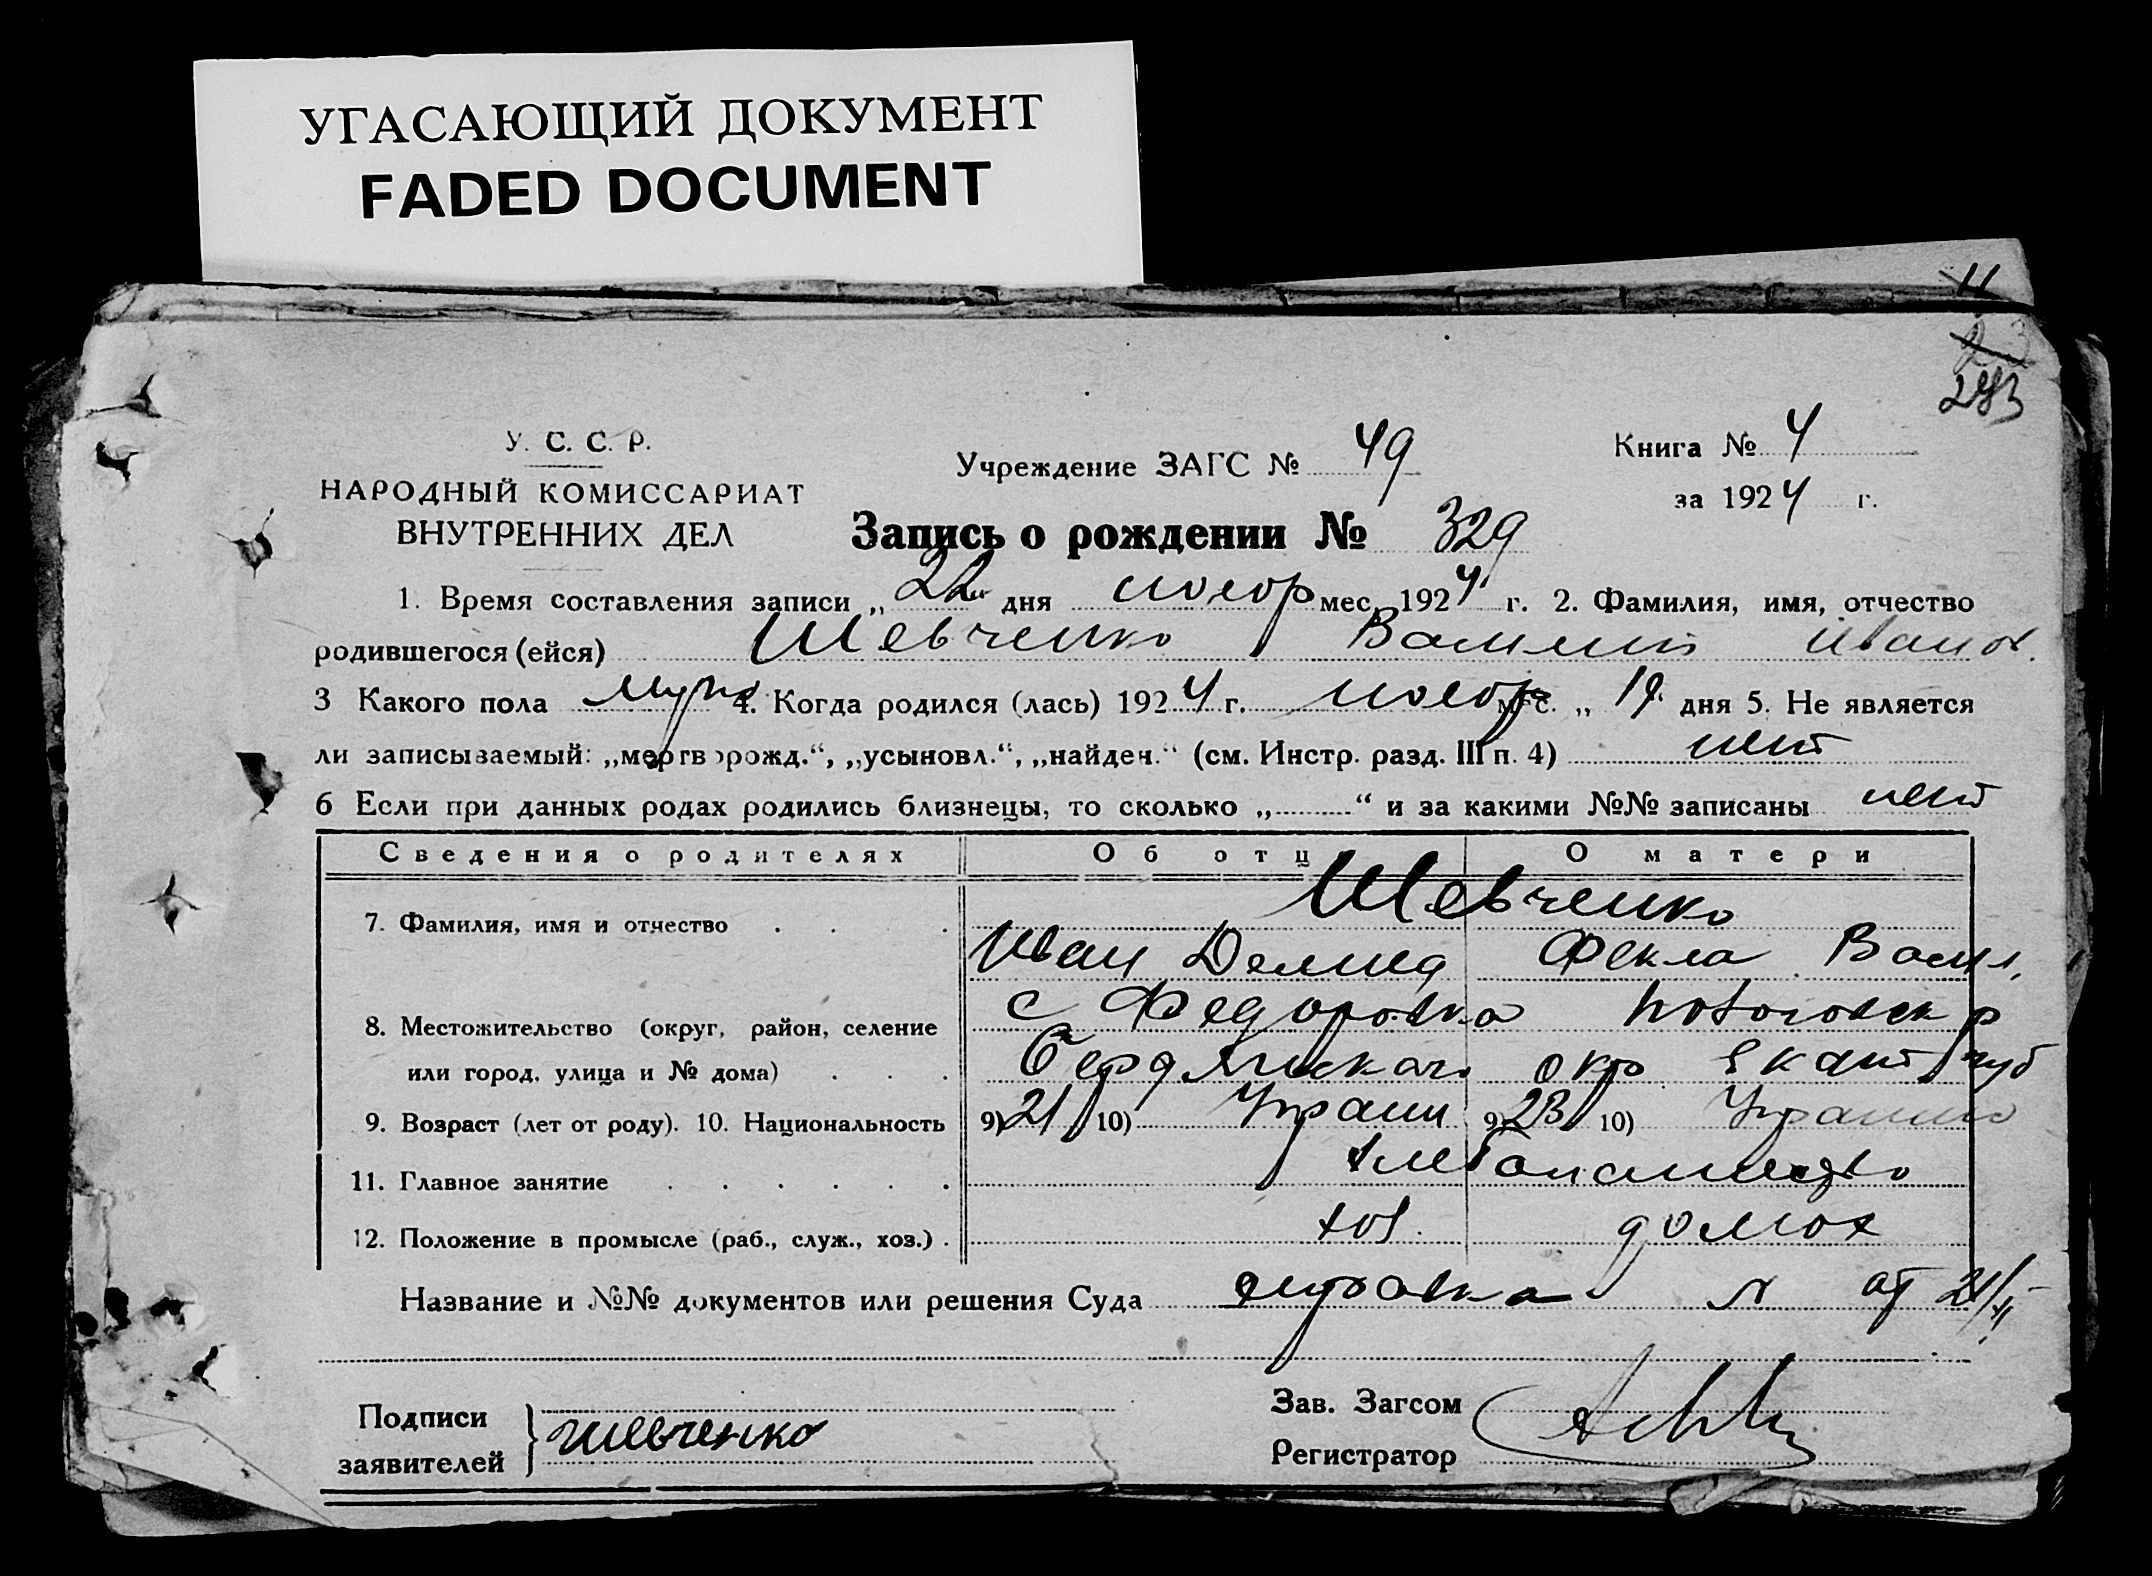 УГАСАЮЩИЙ ДОКУМЕНТ
FADED DOCUMENT
11
283
У. С. С. Р.
НАРОДНЫЙ КОМИССАРИАТ
ВНУТРЕННИХ ДЕЛ
Учреждение ЗАГС № 49
Книга № 4
за 1924 г.
Запись о рождении № 329
1. Время составления записи „22“ дня ноябр мес. 1924 г. 2. Фамилия, имя, отчество
родившегося (ейся) Шевченко Иванов.
3 Какого пола муж 4. Когда родился (лась) 1924 г. ноябр мес. „ 19 дня 5. Не является
ли записываемый: „мертворожд.“, „усыновл.“, „найден.“ (см. Инстр. разд. III п. 4) нет
6 Если при данных родах родились близнецы, то сколько „..........“ и за какими №№ записаны нет
Сведения о родителях Об отц О матери
7. Фамилия, имя и отчество Шевченко
Иван Демид Фекла Васил.
8. Местожительство (округ, район, селение с Федоровка р
или город, улица и № дома) Бердянского окр Екат губ
9. Возраст (лет от роду). 10. Национальность 9) 21 10) Украин 9) 23 10) Украин
11. Главное занятие хлебопашество
12. Положение в промысле (раб., служ., хоз.) хоз. домох
Название и №№ документов или решения Суда справка № от 21/XI
Подписи
заявителей
Шевченко
Зав. Загсом
Регистратор